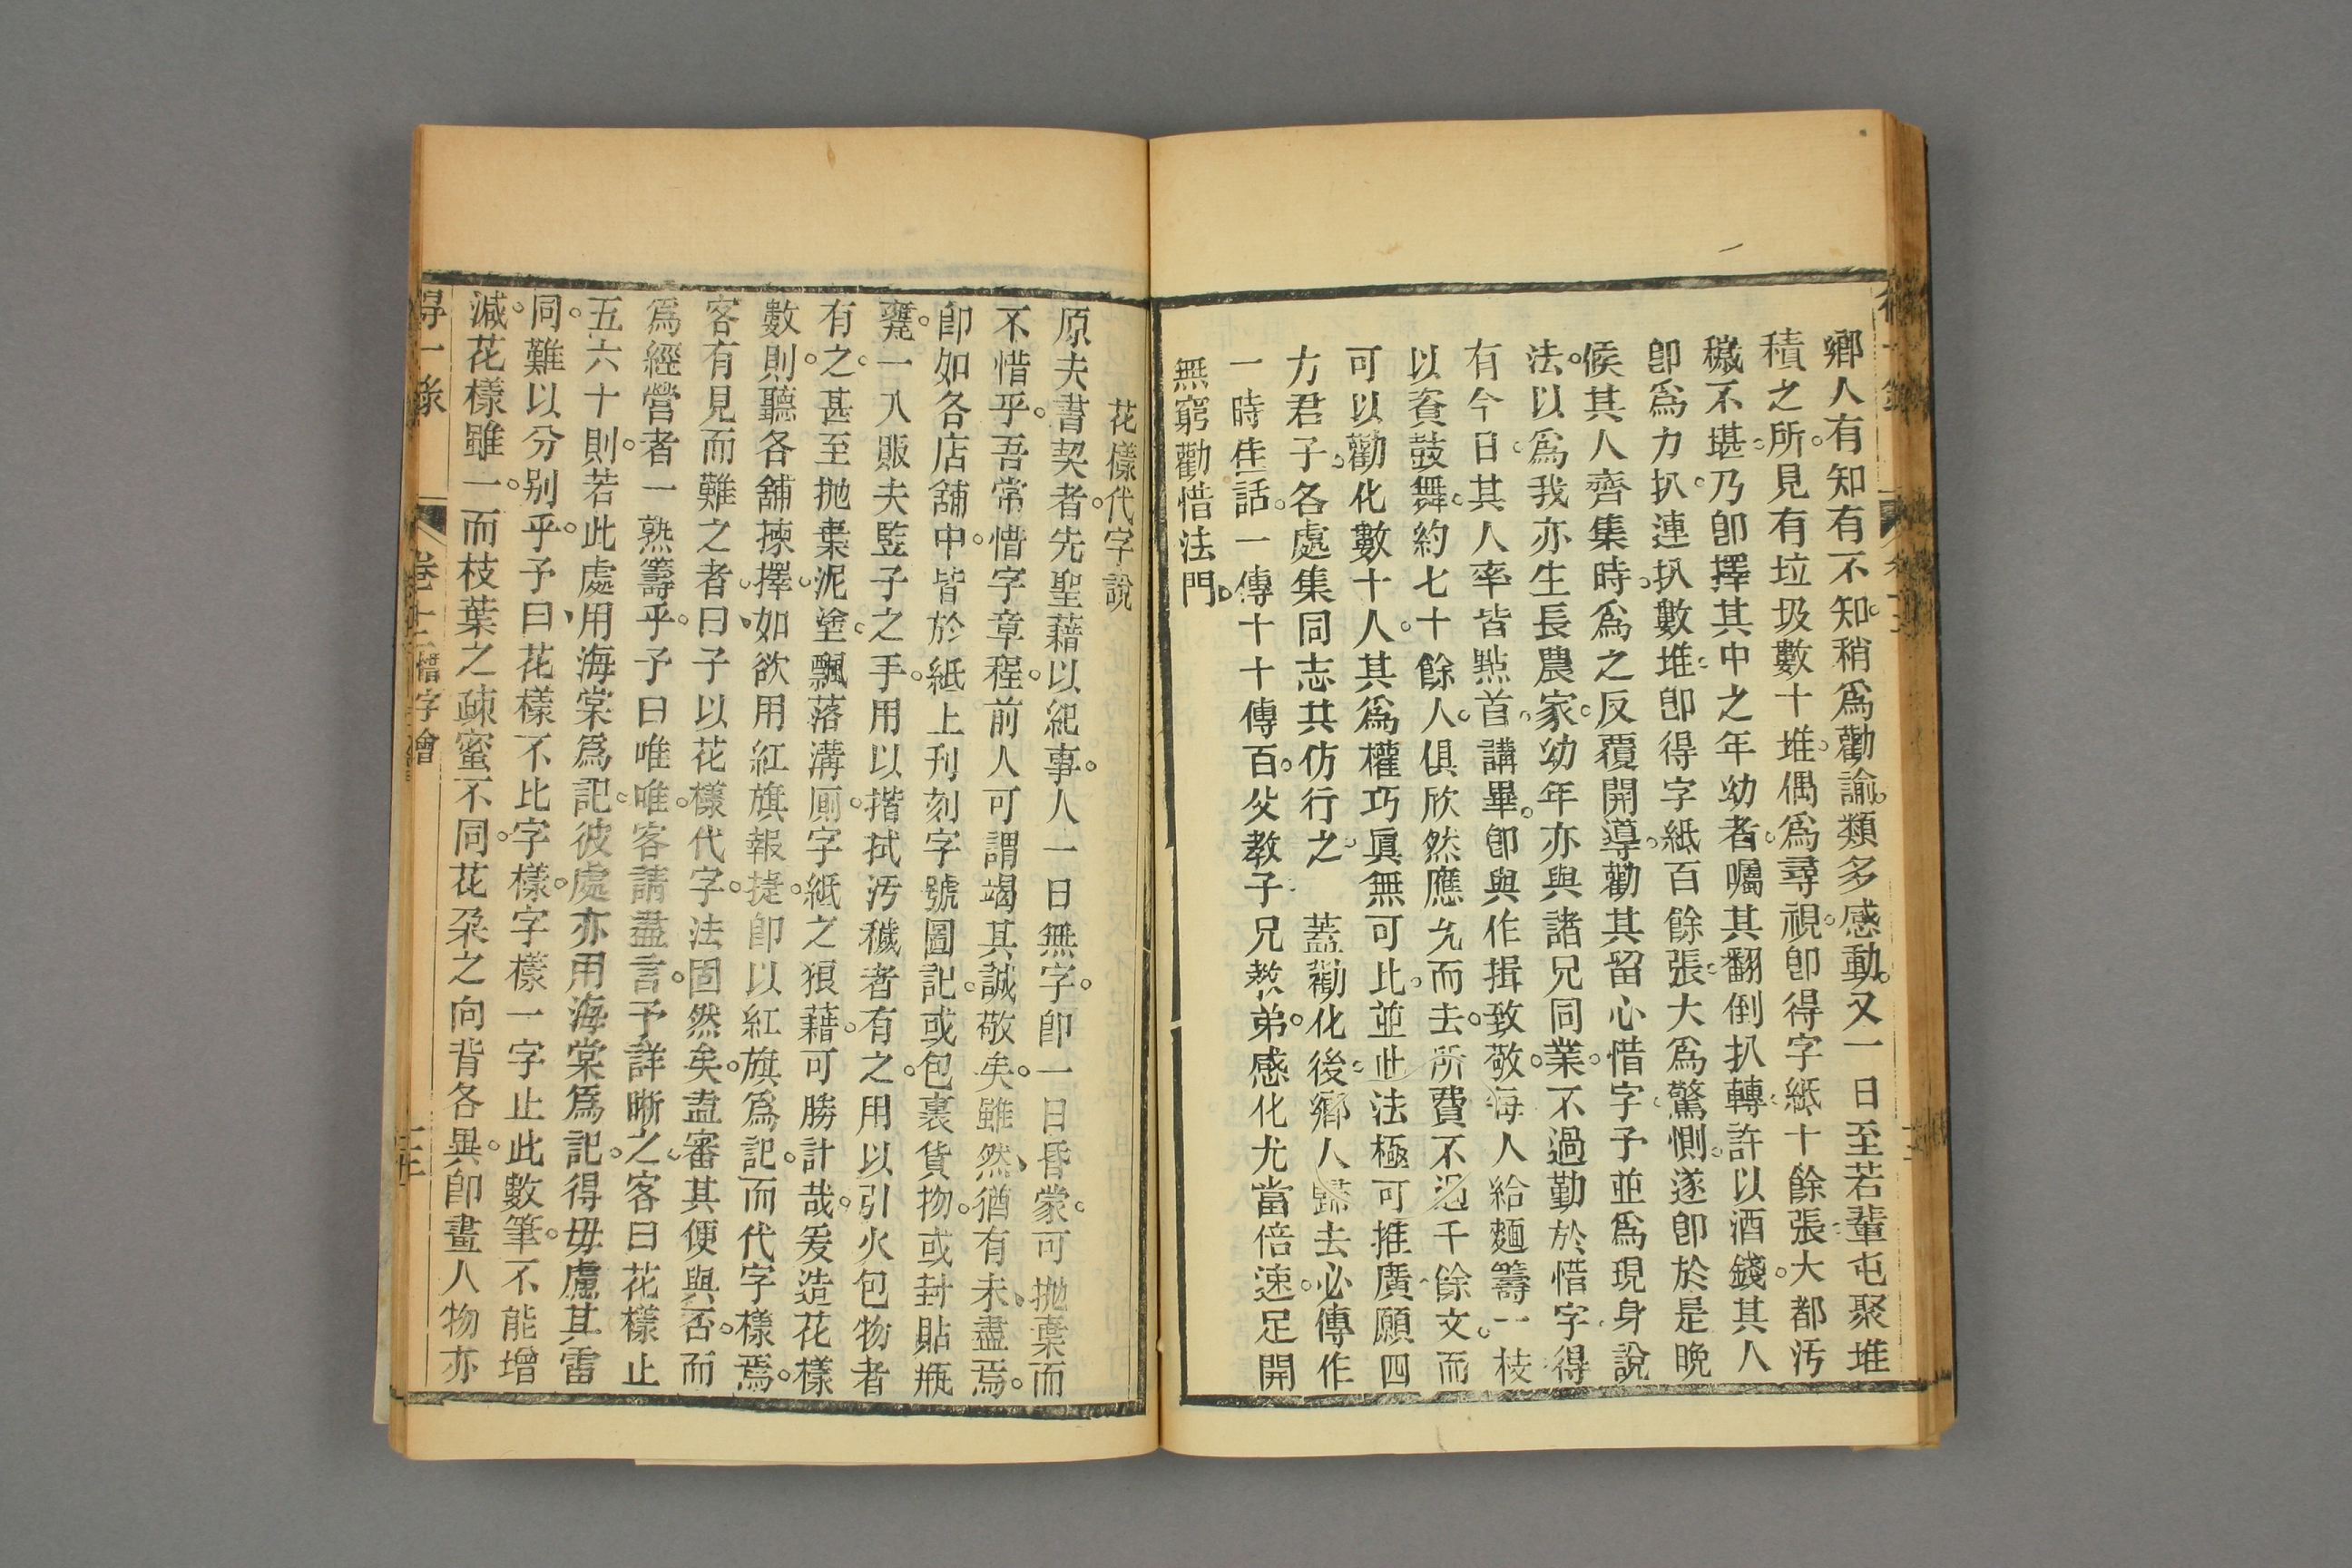 鄉人有知有不知。稍爲勸諭。類多感動。又一日至若輩屯聚堆
積之所。見有垃圾數十堆。偶爲尋視。卽得字紙十餘張。大都汚
穢不堪。乃卽擇其中之年幼者。囑其翻倒扒轉。許以酒錢。其人
卽爲力扒。連扒數堆。卽得字紙百餘張。大爲驚惻。遂卽於是晚
候其人齊集時。爲之反覆開導。勸其留心惜字。予並爲現身說
法。以爲我亦生長農家。幼年亦與諸兄同業。不過勤於惜字。得
有今日。其人率皆點首。講畢。卽與作揖致敬。每人給麵籌一枝
以資鼓舞。約七十餘人。俱欣然應允而去。所費不過千餘文。而
可以勸化數十人。其爲權巧眞無可比。並此法極可推廣。願四
方君子。各處集同志共仿行之。蓋勸化後。鄉人歸去。必傳作
一時佳話。一傳十十傳百。父教子兄教弟。感化尤當倍速。足開
無窮勸惜法門。
花樣代字說
原夫書契者。先聖藉以紀事。人一日無字。卽一日昏蒙。可拋棄而
不惜乎。吾常惜字章程。前人可謂竭其誠敬矣。雖然、猶有未、盡焉。
卽如各店舖中。皆於紙上刊刻字號圖記。或包裹貨物。或封貼瓶
甕。一入販夫豎子之手。用以揩拭汚穢者有之。用以引火包物者
有之。甚至拋棄泥塗。飄落溝厠。字紙之狼藉。可勝計哉。爰造花樣
數則。聽各舖揀擇。如欲用紅旗報捷。卽以紅旗爲記。而代字樣焉。
客有見而難之者。曰、子以花樣代字。法固然矣。盍審其便與否。而
爲經營者一熟籌乎。予曰唯唯。客請盡言。予詳晰之。客曰花樣止
五六十則。若此處用海棠爲記。彼處亦用海棠爲記。得毋慮其雷
同。難以分别乎。予曰、花樣不比字樣。字樣一字止此數筆。不能增
減。花樣雖一。而枝葉之疎蜜不同。花朶之向背各異。卽畫人物亦
得一錄 卷十二 惜字會